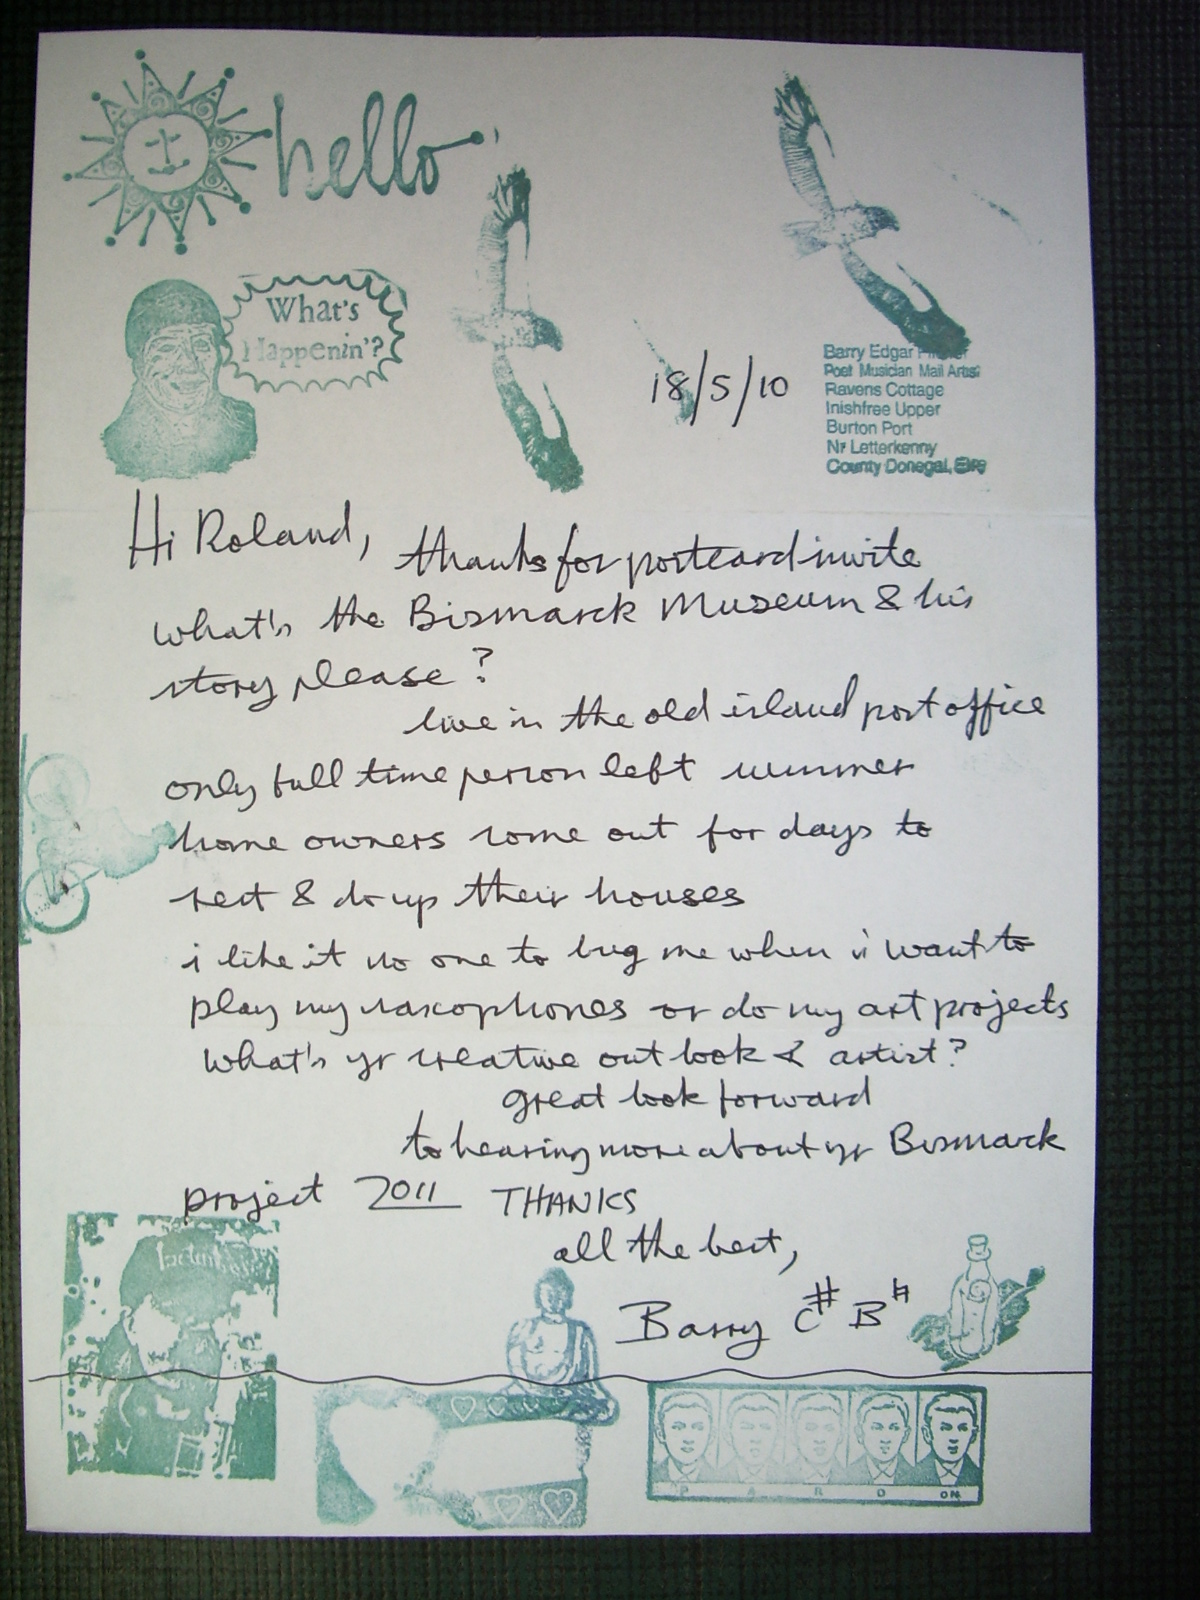 hello
What's
Happenin'?
18/5/10
Barry Edgar
Poet Musician Mail Artist
Ravens Cottage
Inishfree Upper
Burton Port
Nr Letterkenny
County Donegal, Eire
Hi Roland,
thanks for postcard invite
what's the Bismarck Museum & his
story please?
live in the old island post office
only full time person left summer
home owners come out for days to
rest & do up their houses
i like it no one to bug me when i want to
play my saxophones or do my art projects
what's yr creative out look & artist?
great look forward
to hearing more about yr Bismarck
project 2011 THANKS
all the best,
Barry C# B♮
P A R D ON